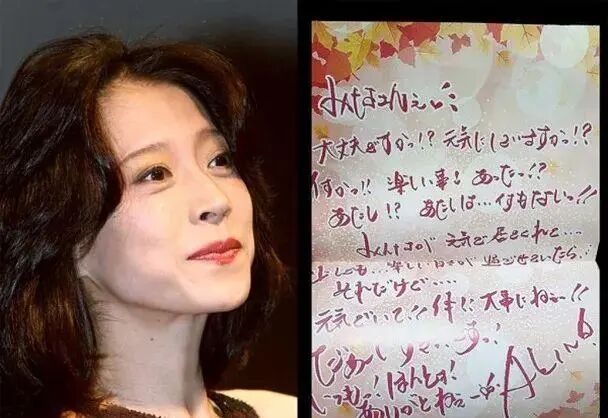 みんなさんえ
大丈夫ですかっ!? 元気にしていますかっ!?
何かっ!! 楽しい事! あったっ!?
あたし!? あたしは...何もないっ!!
みんなが 元気で居てくれて....
少しでも... 楽しい日々が 過ごせていたら
それだけで....
元気でいて!! 体!! 大事にねぇー!!
いつも! ほんとう!
ありがとねぇー